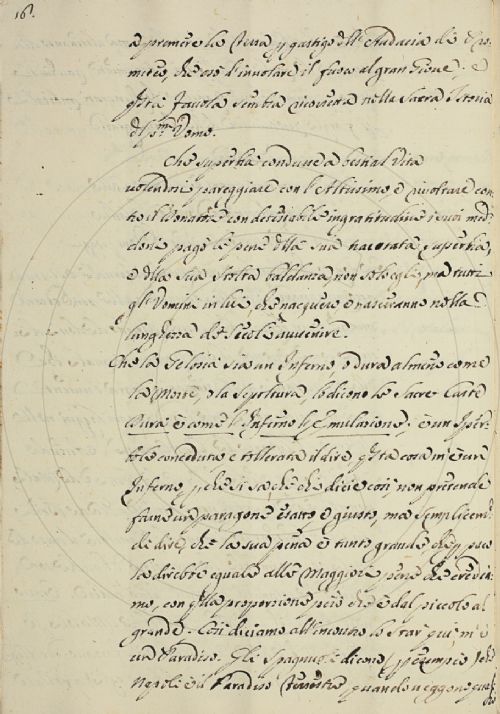 161
a premere la Terra p gastigo dll' Audacia de Pro-
meteo, che osò d'involare il fuoco al gran Giove; e
qsta favola sembra ricoverta nella Sacra Istoria
del pmo Uomo.
Che superbia conduce a bestial vita
volendosi pareggiare con l'Altissimo, e rivoltare con-
tro il Donatore con detestabile ingratitudine i suoi med
doni pagò le pene dlla sua Superbia,
e dlla sua stolta baldanza, non solo egli, ma tutti
gl' Uomini in lui, che nacquero e nasceranno nella
lunghezza de' secoli avvenire.
Che la Gelosia sia un Inferno, o dura almeno come
la Morte, o la Sepoltura, lo dicono le Sacre Carte
Dura è come l'Inferno l'Emulazione; è un Iper-
bole conceduta e tollerata il dire qsta cosa m'è un
Inferno, pche si sa, che chi dice così, non pretende
farne un paragone esatto e giusto, ma semplicem
di dire, che la sua pena è tanto grande che p poco
la direbbe eguale alle Maggiori pene che crediа-
mo, con qlla proporzione però che è dal piccolo al
grande. Così diciamo all'incontro lo star qui, m'è
un Paradiso. Gli Spagnuoli dicono p esempio
Napoli è il Paradiso terrestre quando veggono